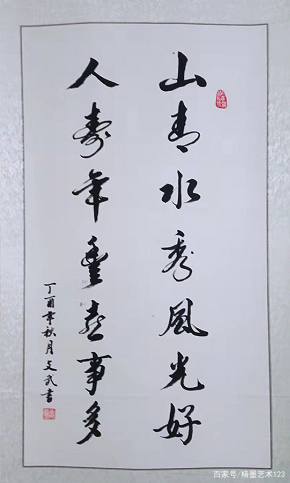 山青水秀风光好
人寿年丰喜事多
丁酉年秋月文武书
百家号/楠墨艺术123